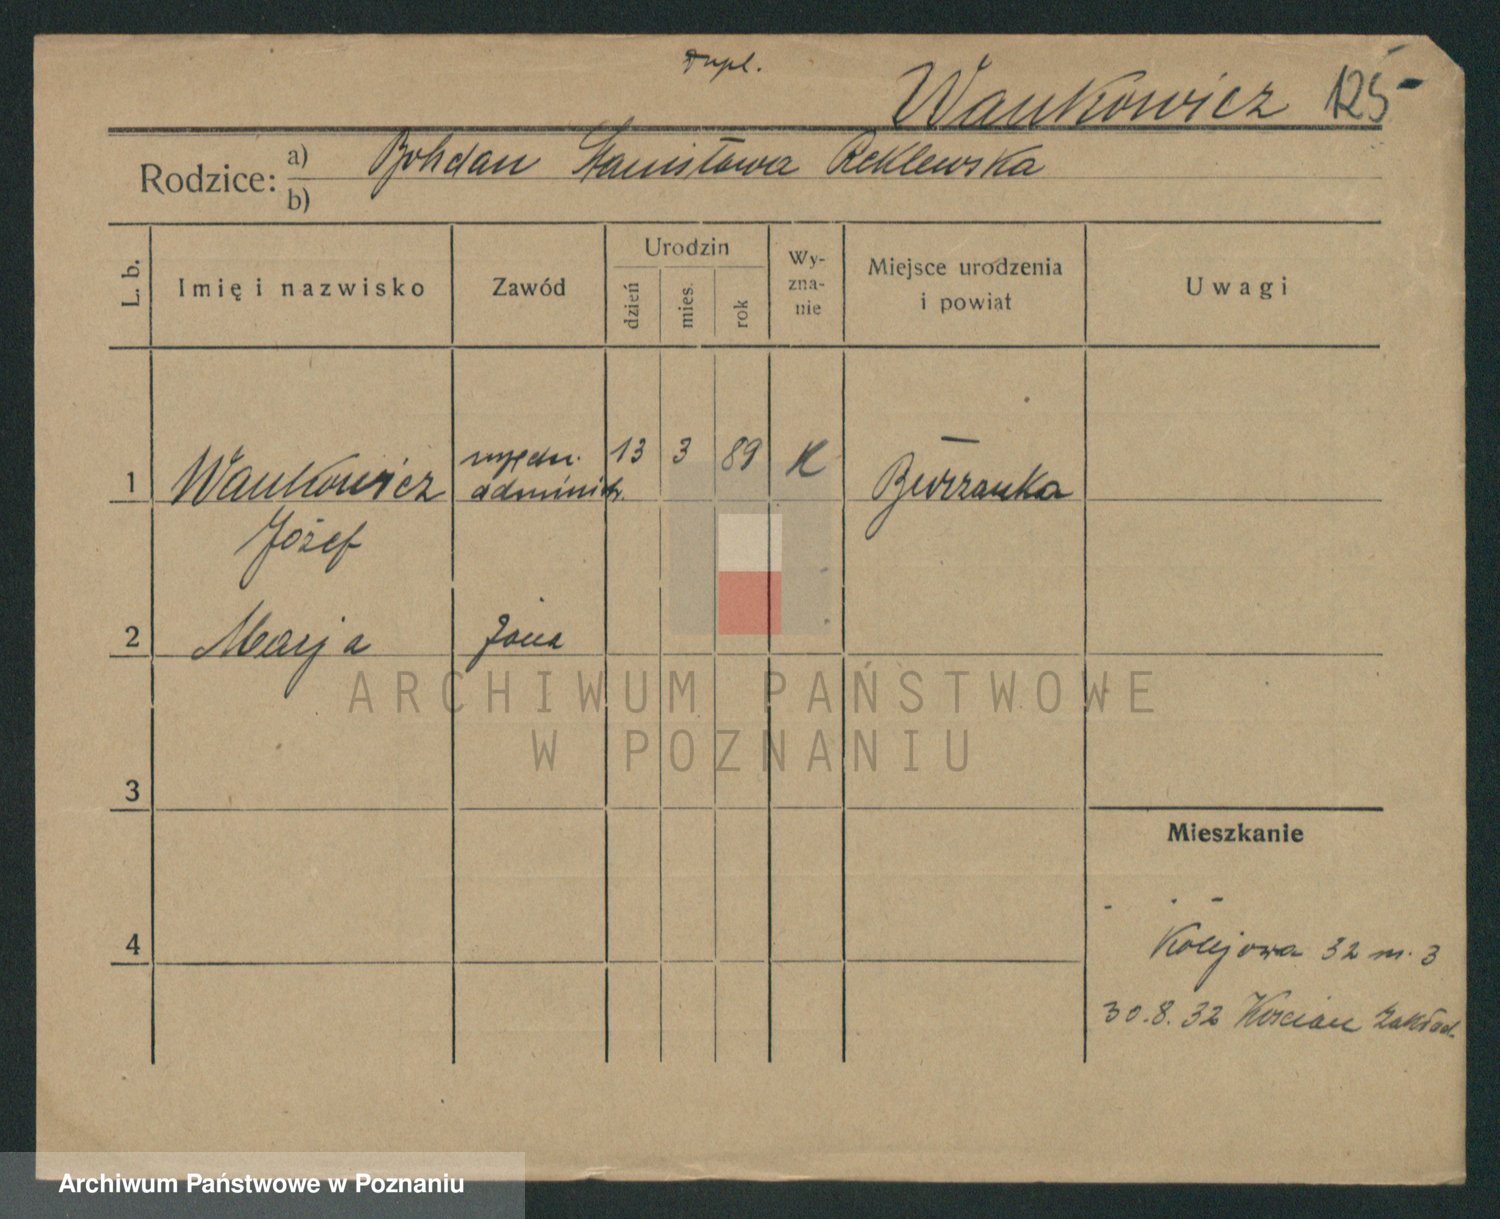 Dupl.
Wankowicz 125
Rodzice: a) Bohdan Stanisława Reklewska
b)
L. b.
Imię i nazwisko
Zawód
Urodzin
dzień
mies.
rok
Wy-
zna-
nie
Miejsce urodzenia
i powiat
Uwagi
1 Wankowicz urzędn. 13 3 89 K
administr. Burzanka
Józef
2 Marja żona
ARCHIWUM PAŃSTWOWE
W POZNANIU
3
Mieszkanie
4
Kolejowa 32 m. 3
30.8.32 Kościan Zakład.
Archiwum Państwowe w Poznaniu